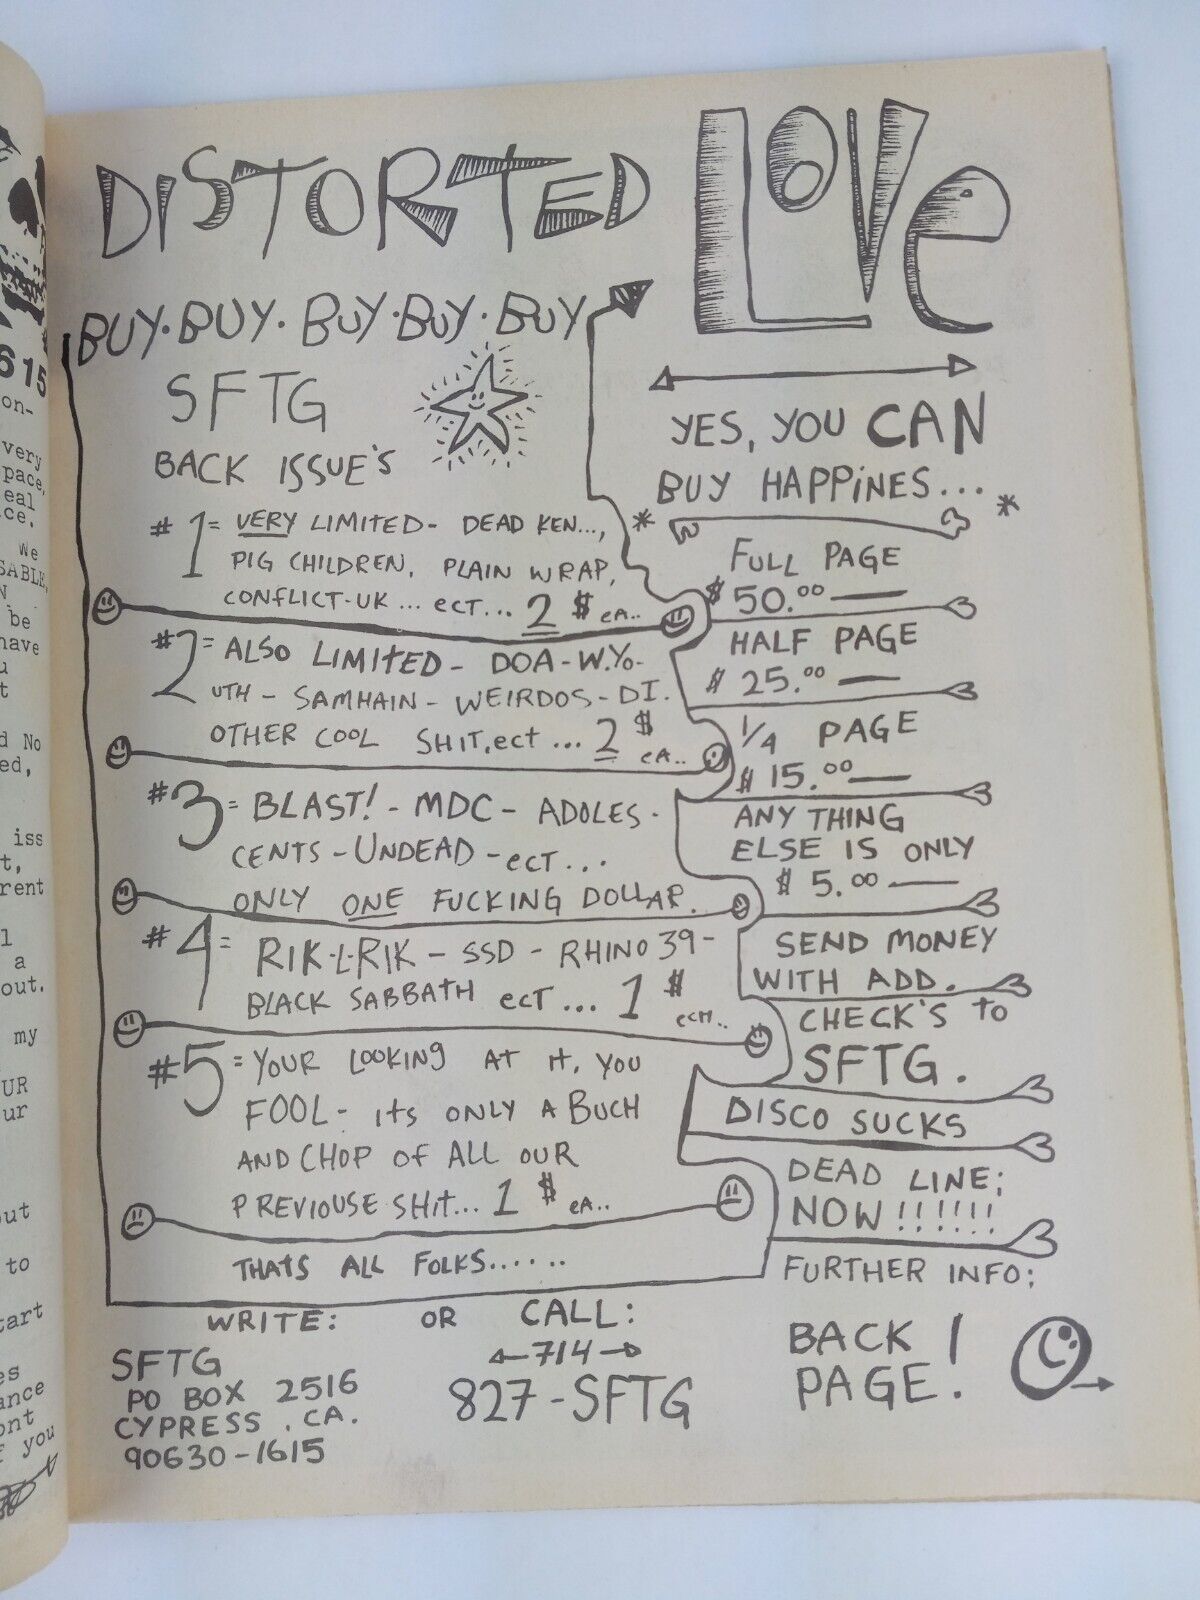 DISTORTED LOVE
BUY·BUY·BUY·BUY·BUY
SFTG
BACK ISSUE'S
#1= VERY LIMITED- DEAD KEN...,
PIG CHILDREN, PLAIN WRAP,
CONFLICT-UK... ECT... 2 $ eA..
#2= ALSO LIMITED- DOA-W.YO-
UTH- SAMHAIN- WEIRDOS-DI.
OTHER COOL SHIT,ECT... 2 $ eA..
#3= BLAST!- MDC- ADOLES-
CENTS-UNDEAD-ECT...
ONLY ONE FUCKING DOLLAR.
#4= RIK-L-RIK- SSD- RHINO 39-
BLACK SABBATH ECT... 1 $ ECH..
#5= YOUR LOOKING AT IT, YOU
FOOL- ITS ONLY A BUCH
AND CHOP OF ALL OUR
PREVIOUSE SHIT... 1 $ eA..
THATS ALL FOLKS......
WRITE: OR CALL:
SFTG
PO BOX 2516
CYPRESS .CA.
90630-1615
714
827-SFTG
YES, YOU CAN
BUY HAPPINES...
* *
FULL PAGE
$ 50.00
HALF PAGE
$ 25.00
1/4 PAGE
$ 15.00
ANY THING
ELSE IS ONLY
$ 5.00
SEND MONEY
WITH ADD.
CHECK'S TO
SFTG.
DISCO SUCKS
DEAD LINE;
NOW!!!!!!
FURTHER INFO;
BACK !
PAGE.
615
on-
very
pace,
eal
ce.
We
SABLE,
N
be
have
u
t
d No
ed,
iss
t,
rent
l
a
out.
my
UR
ur
out
to
tart
es
ance
ont
f you